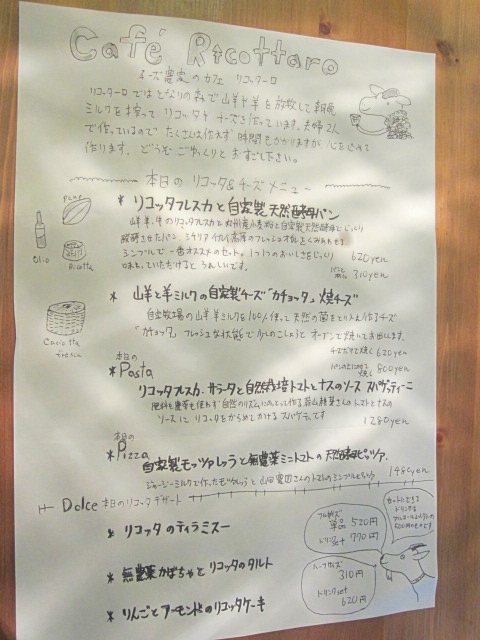 Café Ricottaro
チーズ農家のカフェ リコッターロ
リコッターロではとなりの森で山羊と羊を放牧して朝晩
ミルクを搾ってリコッタやチーズを作っています。夫婦2人
で作っているので たくさんは作れず 時間もかかりますが 心をこめて
作ります。どうぞ ごゆっくり おすごし下さい。
本日の リコッタ&チーズメニュー
* リコッタフレスカと自家製天然酵母パン
山羊、羊、牛のリコッタフレスカと
醗酵させたパン シチリア
シンプルで一番オススメのセット。1つ1つのおいしさをじっくり
味わっていただけると うれしいです。
620yen
310yen
Olio
Ricotta
Caciotta
fresca
* 山羊と羊ミルクの自家製チーズ「カチョッタ」焼チーズ
自家牧場の山羊、羊ミルクを100%使って天然の菌をとり入れ作るチーズ
「カチョッタ」フレッシュな状態で少しのこしょうとオーブンで焼いてお出しします。
チーズだけで焼く 620yen
パンの上にのせる 焼く 800yen
本日の
* Pasta
リコッタフレスカ・サラータと自然栽培トマトとナスのソース スパゲッティーニ
肥料も農薬も使わず 自然のリズムにのっとって作る
ソースに リコッタをからめてかける スパゲティです
1280yen
本日の
* Pizza
自家製モッツァレラと無農薬ミニトマトの天然酵母ピッツァ
ジャージーミルクで作ったモッツァレラと山田農園さんのトマトのシンプルピッツァ
1480yen
Dolce 本日のリコッタ デザート
* リコッタのティラミスー
* 無農薬かぼちゃとリコッタのタルト
* りんごとアーモンドのリコッタケーキ
フルサイズ
単品 520円
ドリンクset 770円
ハーフサイズ
310円
ドリンクset
620円
セットにできる
ドリンクは